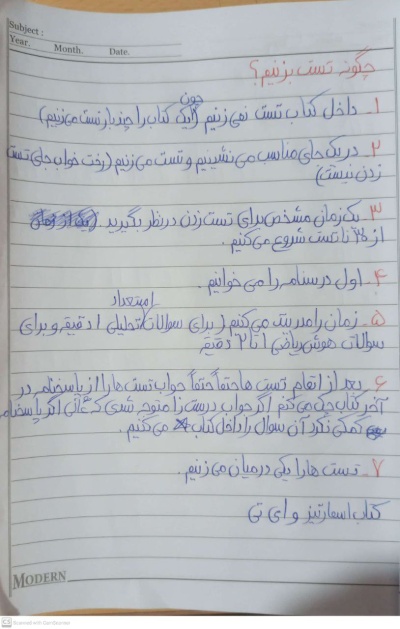 Subject :
Year. Month. Date.
چگونه تست بزنیم؟
۱ـ داخل کتاب تست نمی زنیم (چون یک کتاب را چند بار تست می زنیم)
۲ـ در یک جای مناسب می نشینیم و تست می زنیم (رخت خواب جای تست
زدن نیست)
۳ـ یک زمان مشخص برای تست زدن در نظر بگیرید
از ۲۵ تا تست شروع می کنیم.
۴ـ اول درسنامه را می خوانیم.
۵ـ زمان را مدیریت می کنیم (برای سوالات استعداد تحلیلی ۱ دقیقه و برای
سوالات هوش ریاضی ۱ تا ۲ دقیقه
۶ـ بعد از اتمام تست ها حتماً حتماً جواب تست ها را از پاسخنامه در
آخر کتاب چک می کنیم اگر جواب درست را متوجه شدی که عالی اگر پاسخنامه
کمکی نکرد آن سوال را داخل کتاب می کنیم.
۷ـ تست ها را یکی در میان می زنیم.
کتاب اسمارتیز و ای تی
MODERN
Scanned with CamScanner